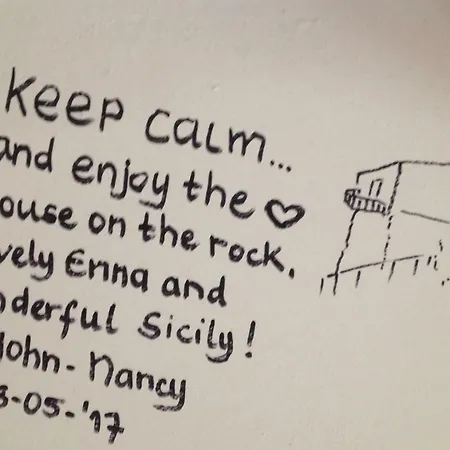 KEEP CALM...
and enjoy the ♡
ouse on the rock.
vely Enna and
derful Sicily!
John-Nancy
3-05-'17